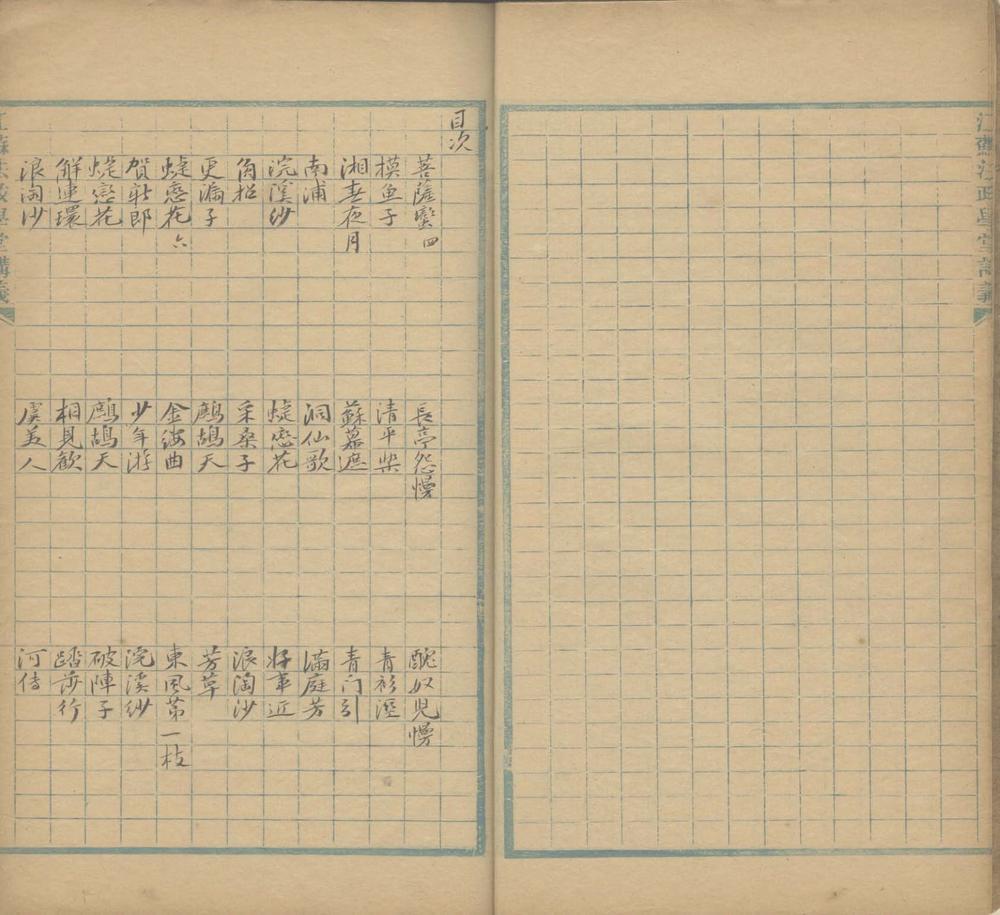 江蘇法政學堂講義
目次
菩薩蠻四 長亭怨慢 醜奴兒慢
摸魚子 清平樂 青衫溼
湘春夜月 蘇幕遮 青门引
南浦 洞仙歌 滿庭芳
浣溪紗 蜨戀花 好事近
角招 采桑子 浪淘沙
更漏子 鷓鴣天 芳草
蜨戀花六 金縷曲 東風苐一枝
賀新郎 少年游 浣溪紗
蜨戀花 鷓鴣天 破陣子
解連環 相見歡 踏莎行
浪淘沙 虞美人 河傳
江蘇法政學堂講義